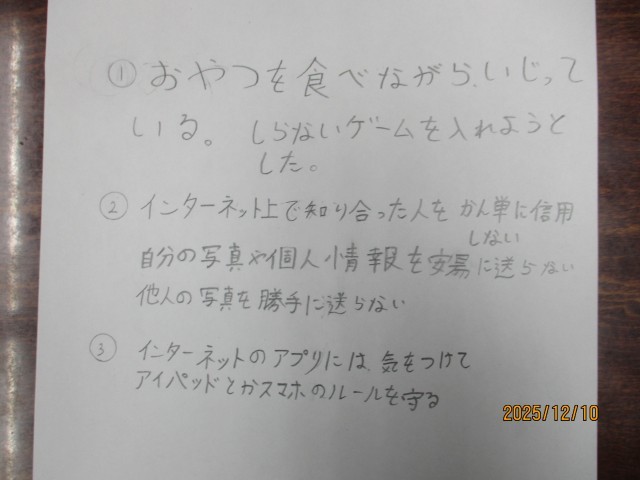 ① おやつを食べながら、いじって
いる。 しらないゲームを入れようと
した。
② インターネット上で知り合った人を かん単に信用
しない
自分の写真や個人情報を安易に送らない
他人の写真を勝手に送らない
③ インターネットのアプリには、気をつけて
アイパッドとかスマホのルールを守る
2025/12/10